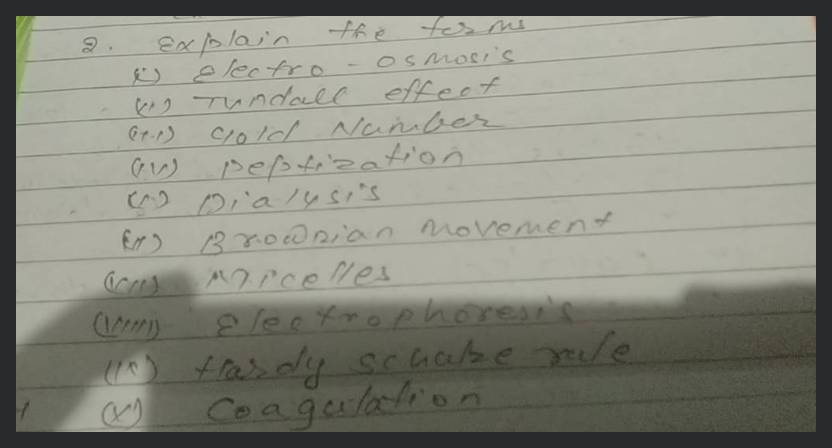 2. Explain the terms
(i) Electro-osmosis
(ii) Tundall effect
(iii) Gold Number
(iv) Peptization
(v) Dialysis
(vi) Brownian Movement
(vii) Micelles
(viii) Electrophoresis
(ix) Hardy Schulze rule
(x) Coagulation